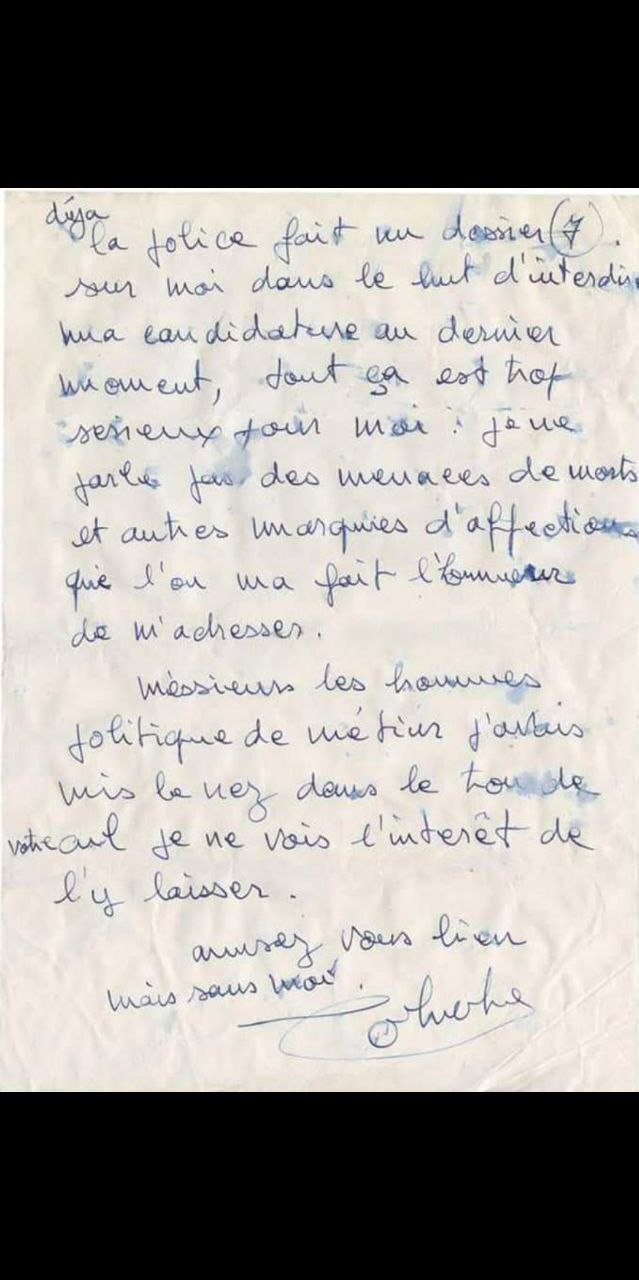 déja
la police fait un dossier (7).
sur moi dans le but d'interdire
ma candidature au dernier
moment, tout ça est trop
serieux pour moi : je ne
parle pas des menaces de morts
et autres marquies d'affections
que l'on ma fait l'honneur
de m'adresser.
méssieurs les hommes
politique de métier j'avais
mis le nez dans le trou de
votre cul je ne vois l'interêt de
l'y laisser.
amusez vous bien
mais sans moi.
Coluche